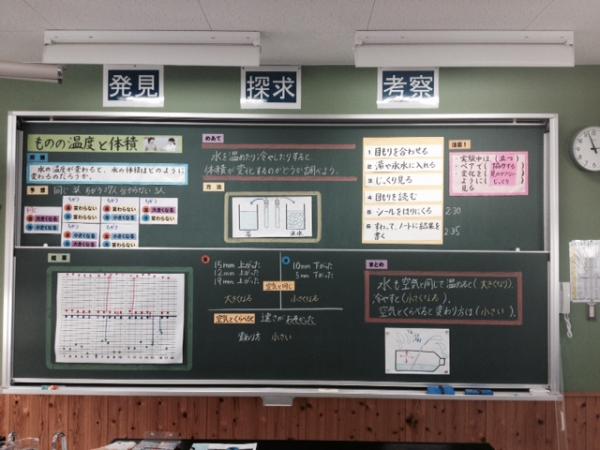 発見
探求
考察
ものの温度と体積
問題
水の温度が変わると、水の体積はどのように
変わるのだろうか。
予想
同じ
ちがう
分からない
大きくなる
変わらない
小さくなる
変わらない
小さくなる
大きくなる
変わらない
小さくなる
大きくなる
めあて
水を温めたり冷やしたりすると
体積が変化するのかどうか調べよう。
方法
湯
氷水
1 目もりを合わせる
2 湯や氷水に入れる
3 じっくり見る
4 目もりを読む
5 シールをはりにくる
6 すわって、ノートに結果を
書く
2:30
2:35
注目!
・実験中は(立つ)
・ペアで(協力する)
・変化を見のがさない
ように(じっくり)
見る
結果
15mm 上がった
12mm 上がった
19mm 上がった
空気と同じ
大きくなる
10mm 下がった
5mm 下がった
小さくなる
空気とくらべると
速さがおそかった
変わり方 小さい
まとめ
水も空気と同じで温めると(大きくなり)
冷やすと(小さくなる)。
空気とくらべると変わり方は(小さい)。